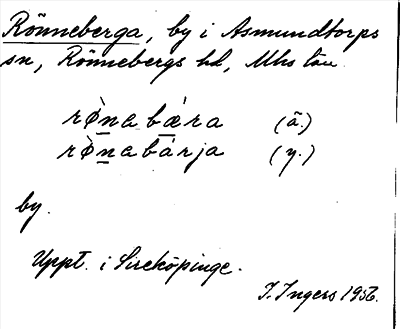 Rönneberga, by i Asmundtorps
sn, Rönnebergs hd, Mhs län
rø̀na bæ̀ra (ä.)
rø̀na bàrja (y.)
by.
Uppt. i Sireköpinge.
I. Ingers 1956.